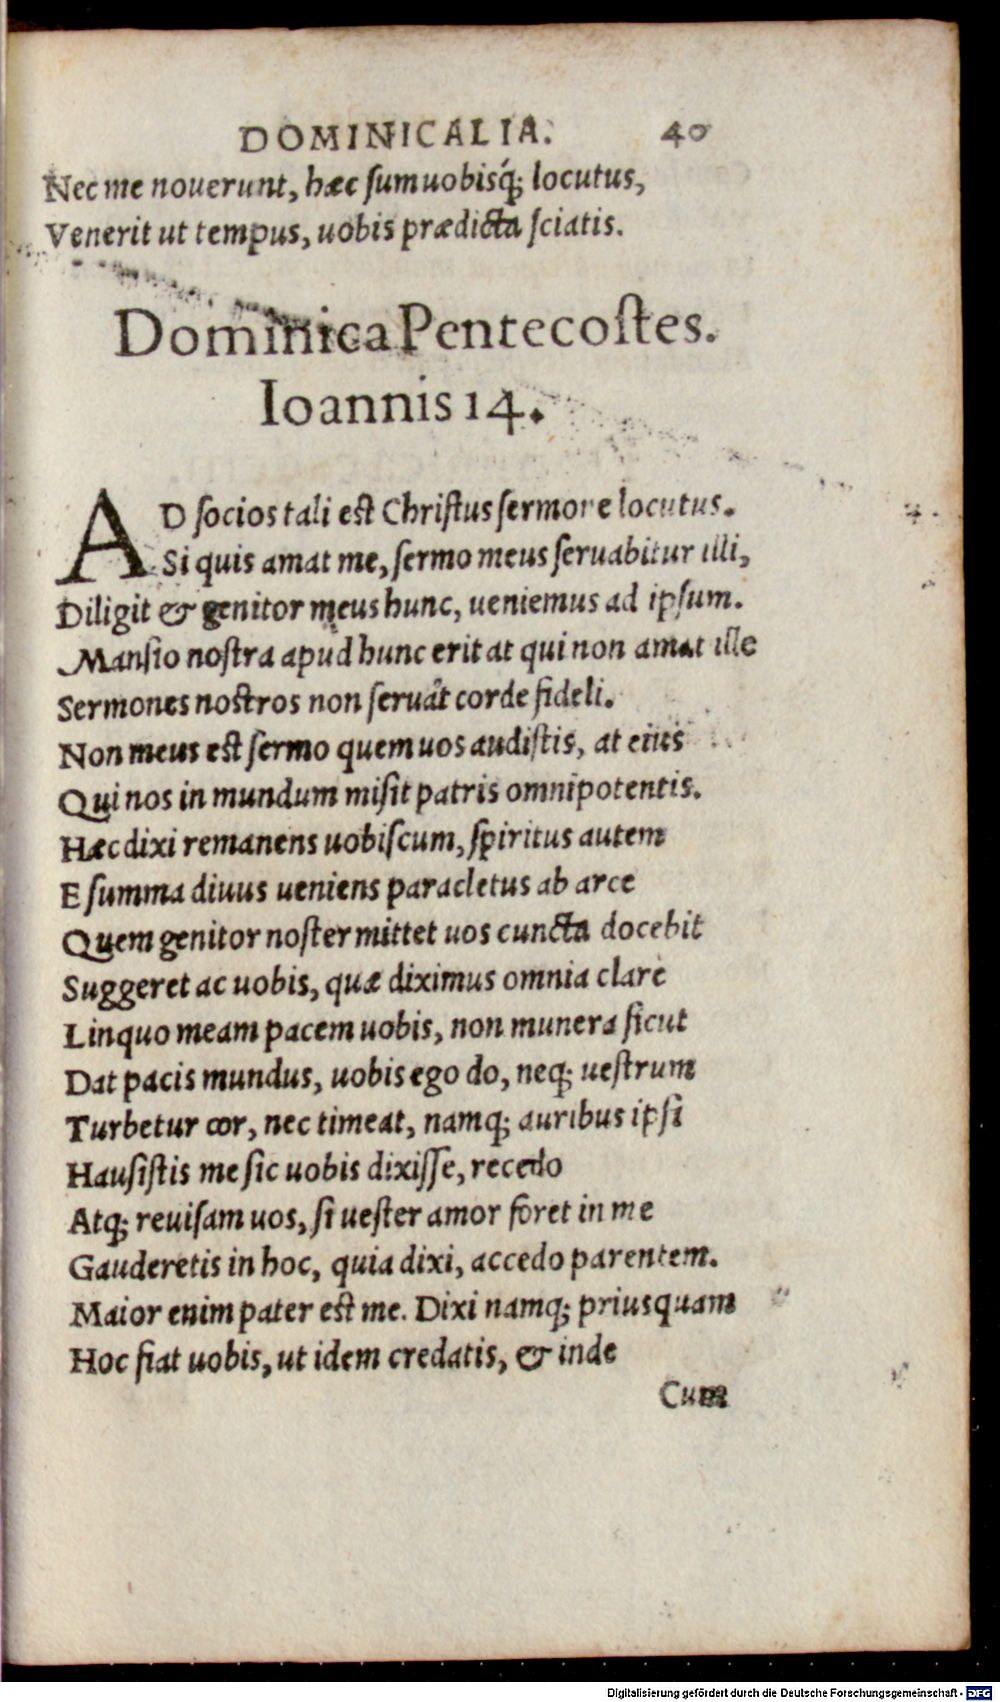 DOMINICALIA. 40
Nec me nouerunt, hæc ſum uobisq́; locutus,
Venerit ut tempus, uobis prædicta ſciatis.
Dominica Pentecoſtes.
Ioannis 14.
AD ſocios tali eſt Chriſtus ſermone locutus.
Si quis amat me, ſermo meus ſeruabitur illi,
Diligit & genitor meus hunc, ueniemus ad ipſum.
Manſio noſtra apud hunc erit at qui non amat ille
Sermones noſtros non ſeruāt corde fideli.
Non meus eſt ſermo quem uos audiſtis, at eius
Qui nos in mundum miſit patris omnipotentis.
Hæc dixi remanens uobiſcum, ſpiritus autem
E ſumma diuus ueniens paracletus ab arce
Quem genitor noſter mittet uos cuncta docebit
Suggeret ac uobis, quæ diximus omnia clarè
Linquo meam pacem uobis, non munera ſicut
Dat pacis mundus, uobis ego do, neq; ueſtrum
Turbetur cor, nec timeat, namq; auribus ipſi
Hauſiſtis me ſic uobis dixiſſe, recedo
Atq; reuiſam uos, ſi ueſter amor foret in me
Gauderetis in hoc, quia dixi, accedo parentem.
Maior enim pater eſt me. Dixi namq; priusquam
Hoc fiat uobis, ut idem credatis, & inde
Cum
Digitalisierung gefördert durch die Deutsche Forschungsgemeinschaft - DFG